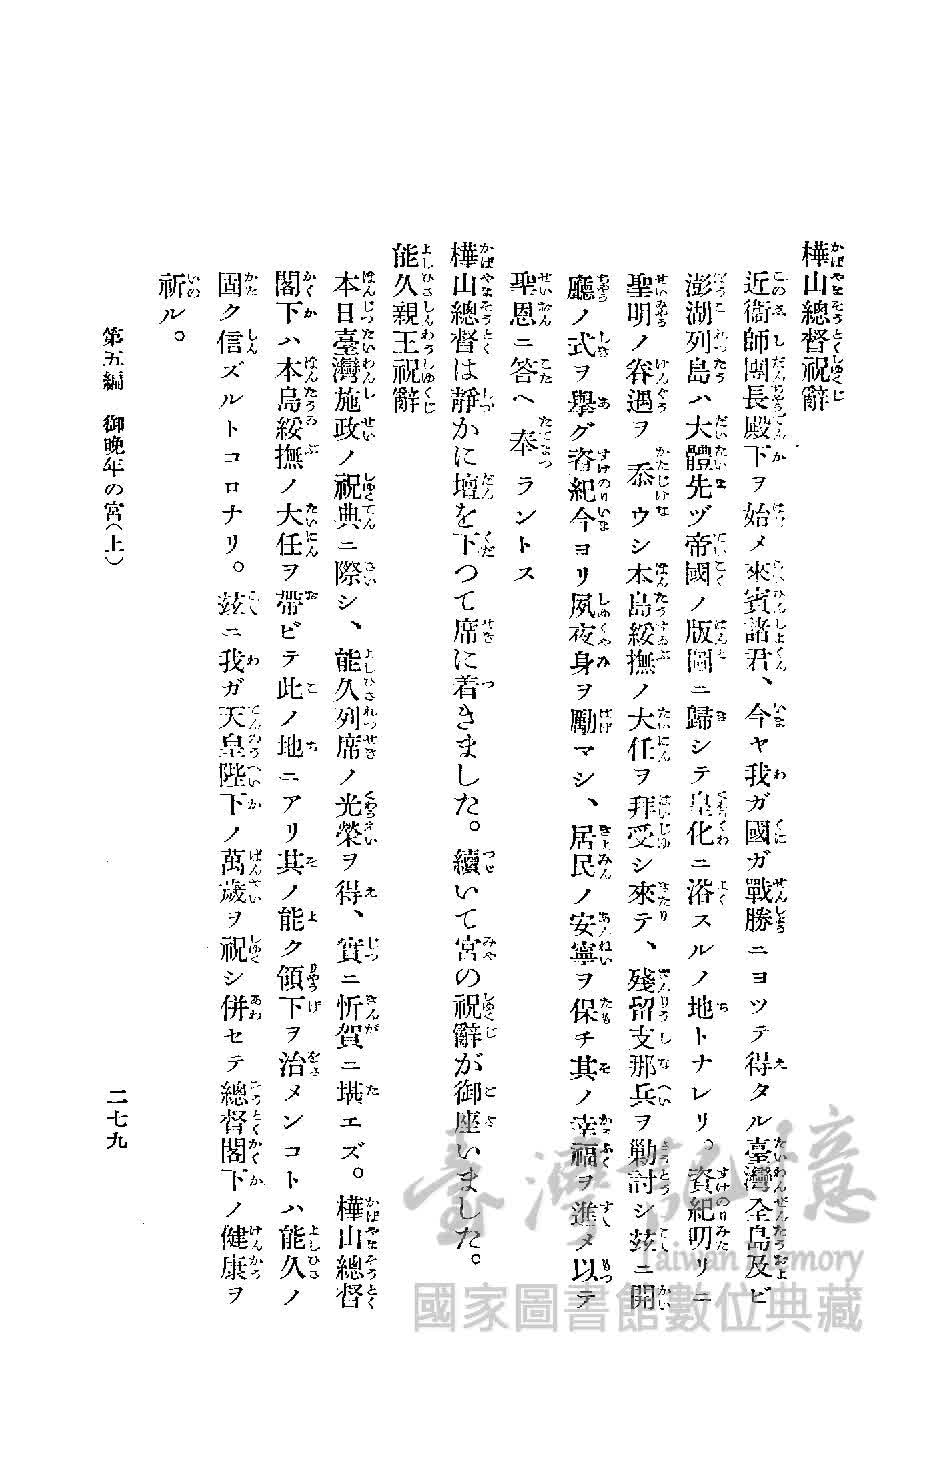 樺山總督祝辭
近衞師團長殿下ヲ始メ來賓諸君、今ヤ我ガ國ガ戰勝ニヨツテ得タル臺灣全島及ビ
澎湖列島ハ大體先ヅ帝國ノ版圖ニ歸シテ皇化ニ浴スルノ地トナレリ。資紀明リニ
聖明ノ眷遇ヲ忝ウシ本島綏撫ノ大任ヲ拜受シ來テ、殘留支那兵ヲ勦討シ玆ニ開
廳ノ式ヲ擧グ資紀今ヨリ夙夜身ヲ勵マシ、居民ノ安寧ヲ保チ其ノ幸福ヲ進メ以テ
聖恩ニ答ヘ奉ラントス
樺山總督は靜かに壇を下つて席に着きました。續いて宮の祝辭が御座いました。
能久親王祝辭
本日臺灣施政ノ祝典ニ際シ、能久列席ノ光榮ヲ得、實ニ忻賀ニ堪エズ。樺山總督
閣下ハ本島綏撫ノ大任ヲ帶ビテ此ノ地ニアリ其ノ能ク領下ヲ治メンコトハ能久ノ
固ク信ズルトコロナリ。玆ニ我ガ天皇陛下ノ萬歲ヲ祝シ併セテ總督閣下ノ健康ヲ
祈ル。
第五編 御晚年の宮（上）
二七九
臺灣記憶
Taiwan Memory
國家圖書館數位典藏